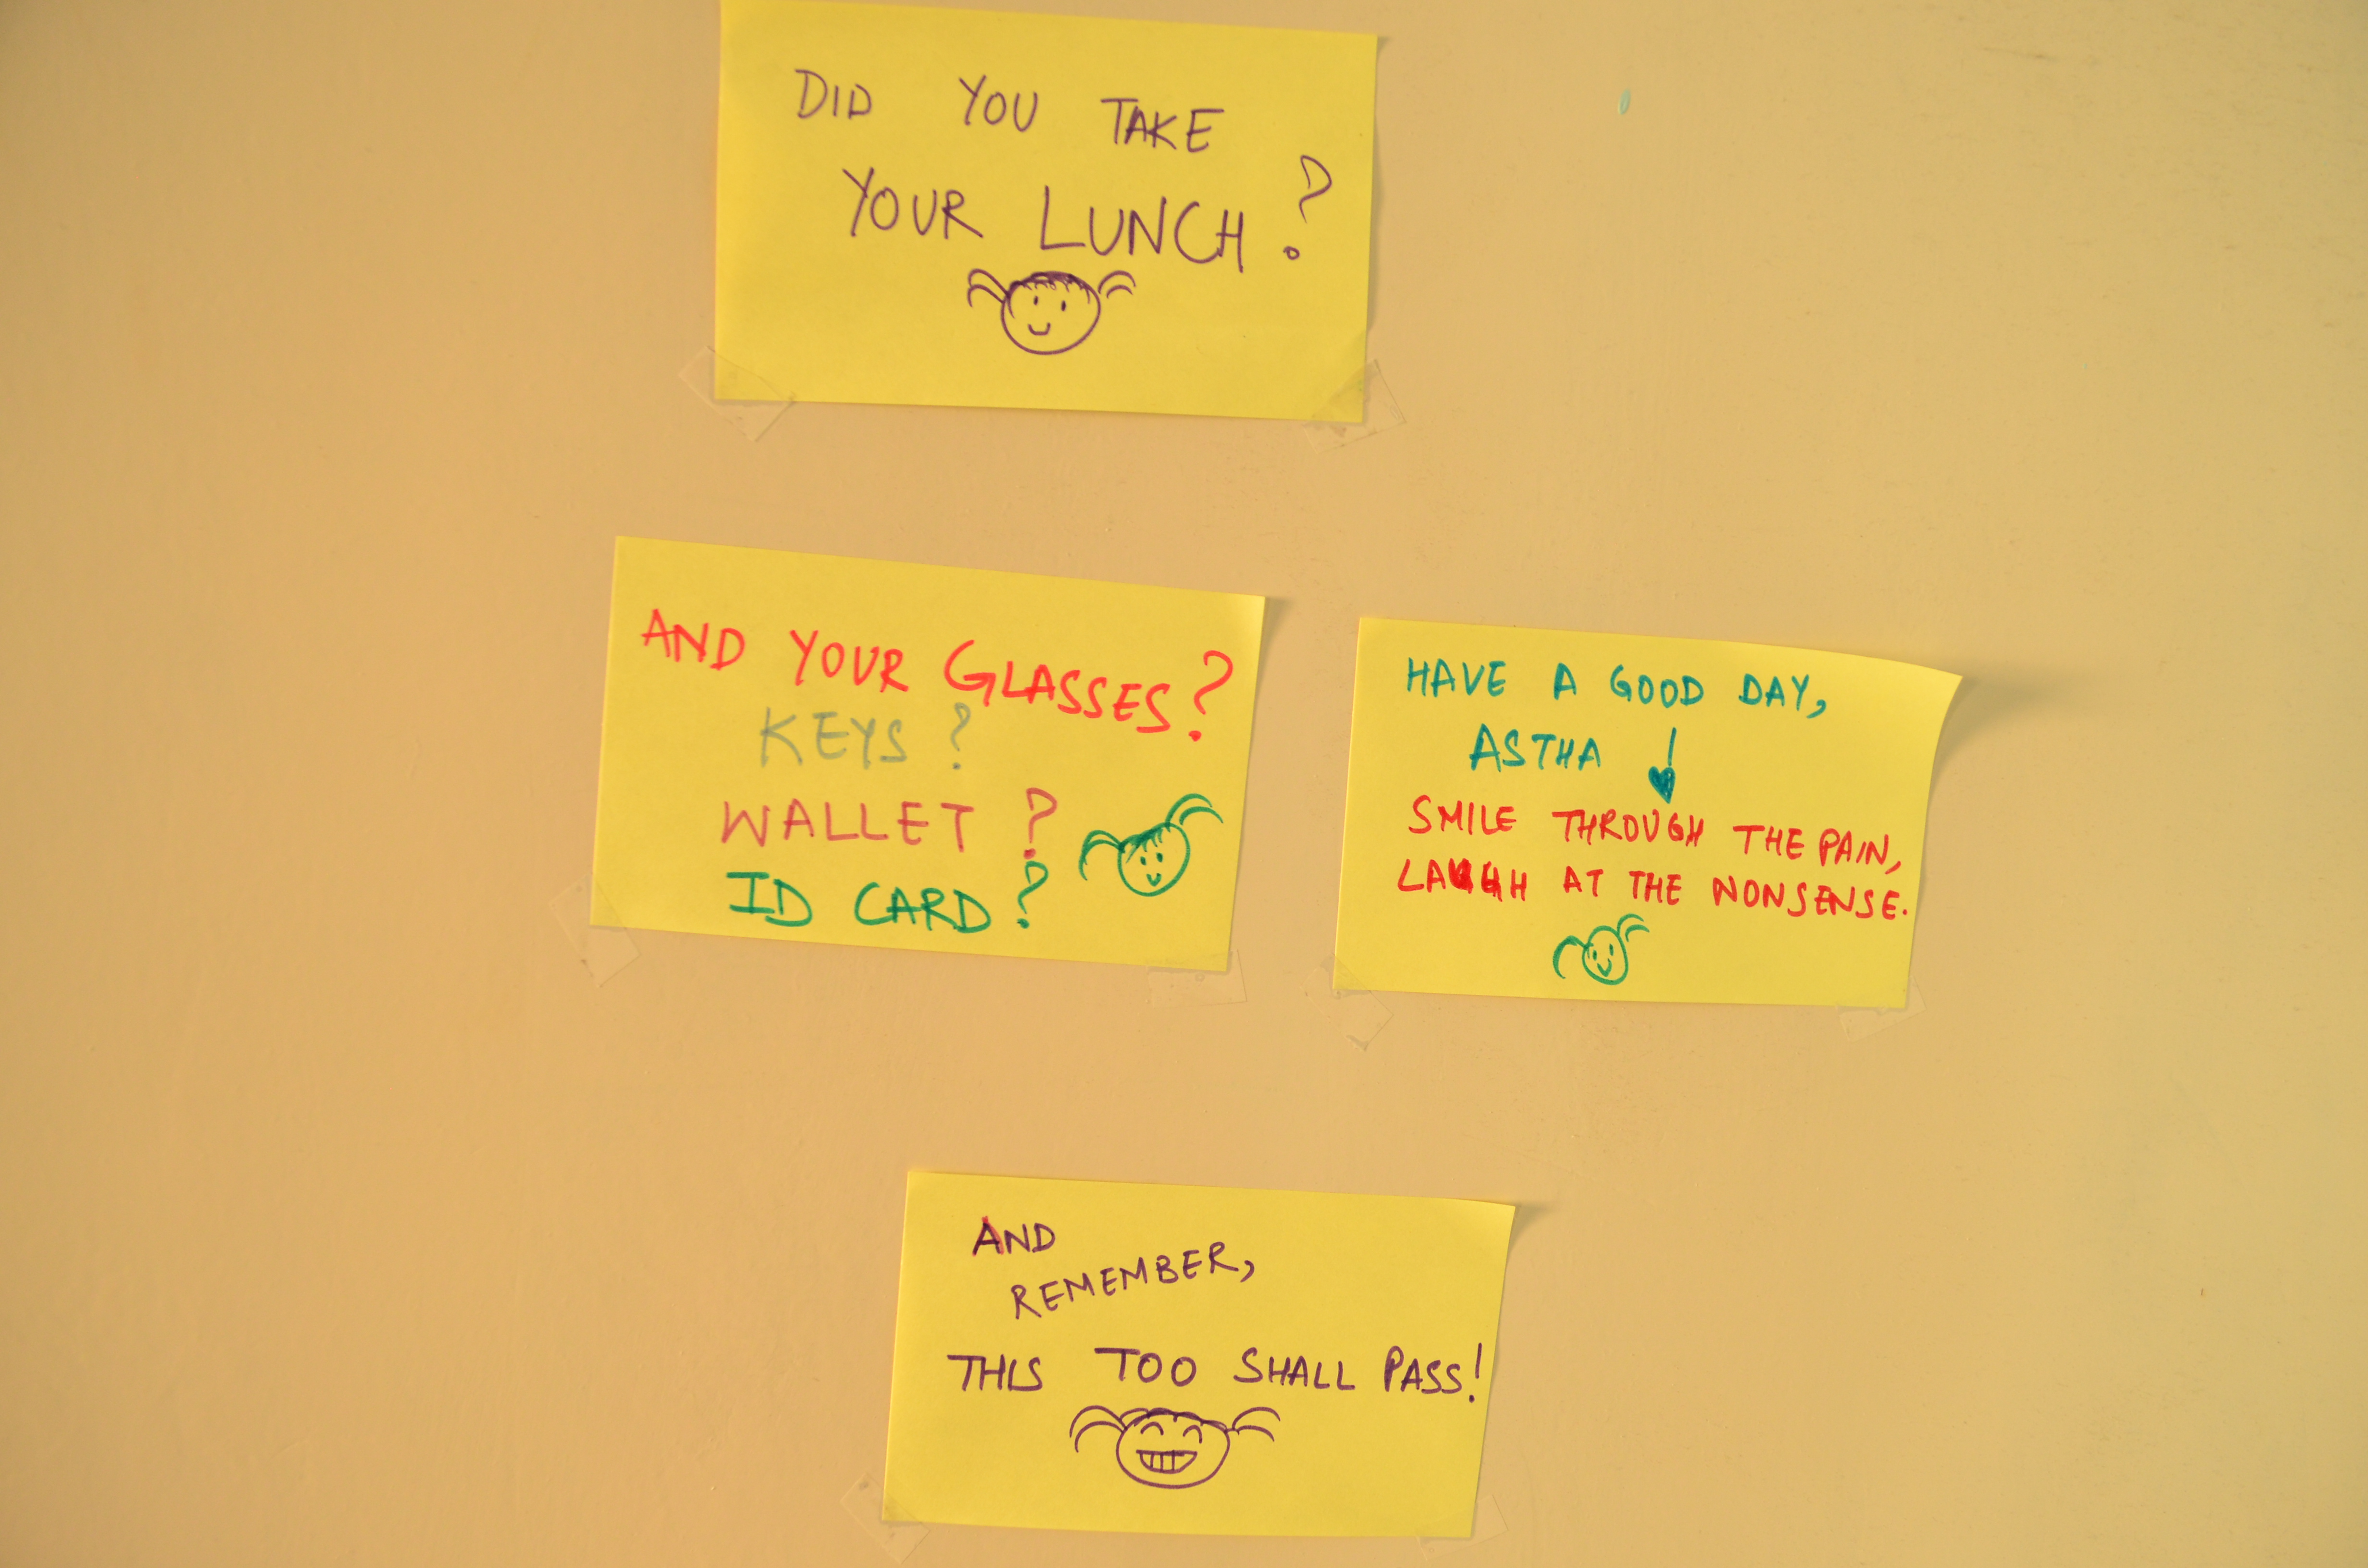 DID YOU TAKE
YOUR LUNCH?
AND YOUR GLASSES?
KEYS?
WALLET?
ID CARD?
HAVE A GOOD DAY,
ASTHA
SMILE THROUGH THE PAIN,
LAUGH AT THE NONSENSE.
AND
REMEMBER,
THIS TOO SHALL PASS!